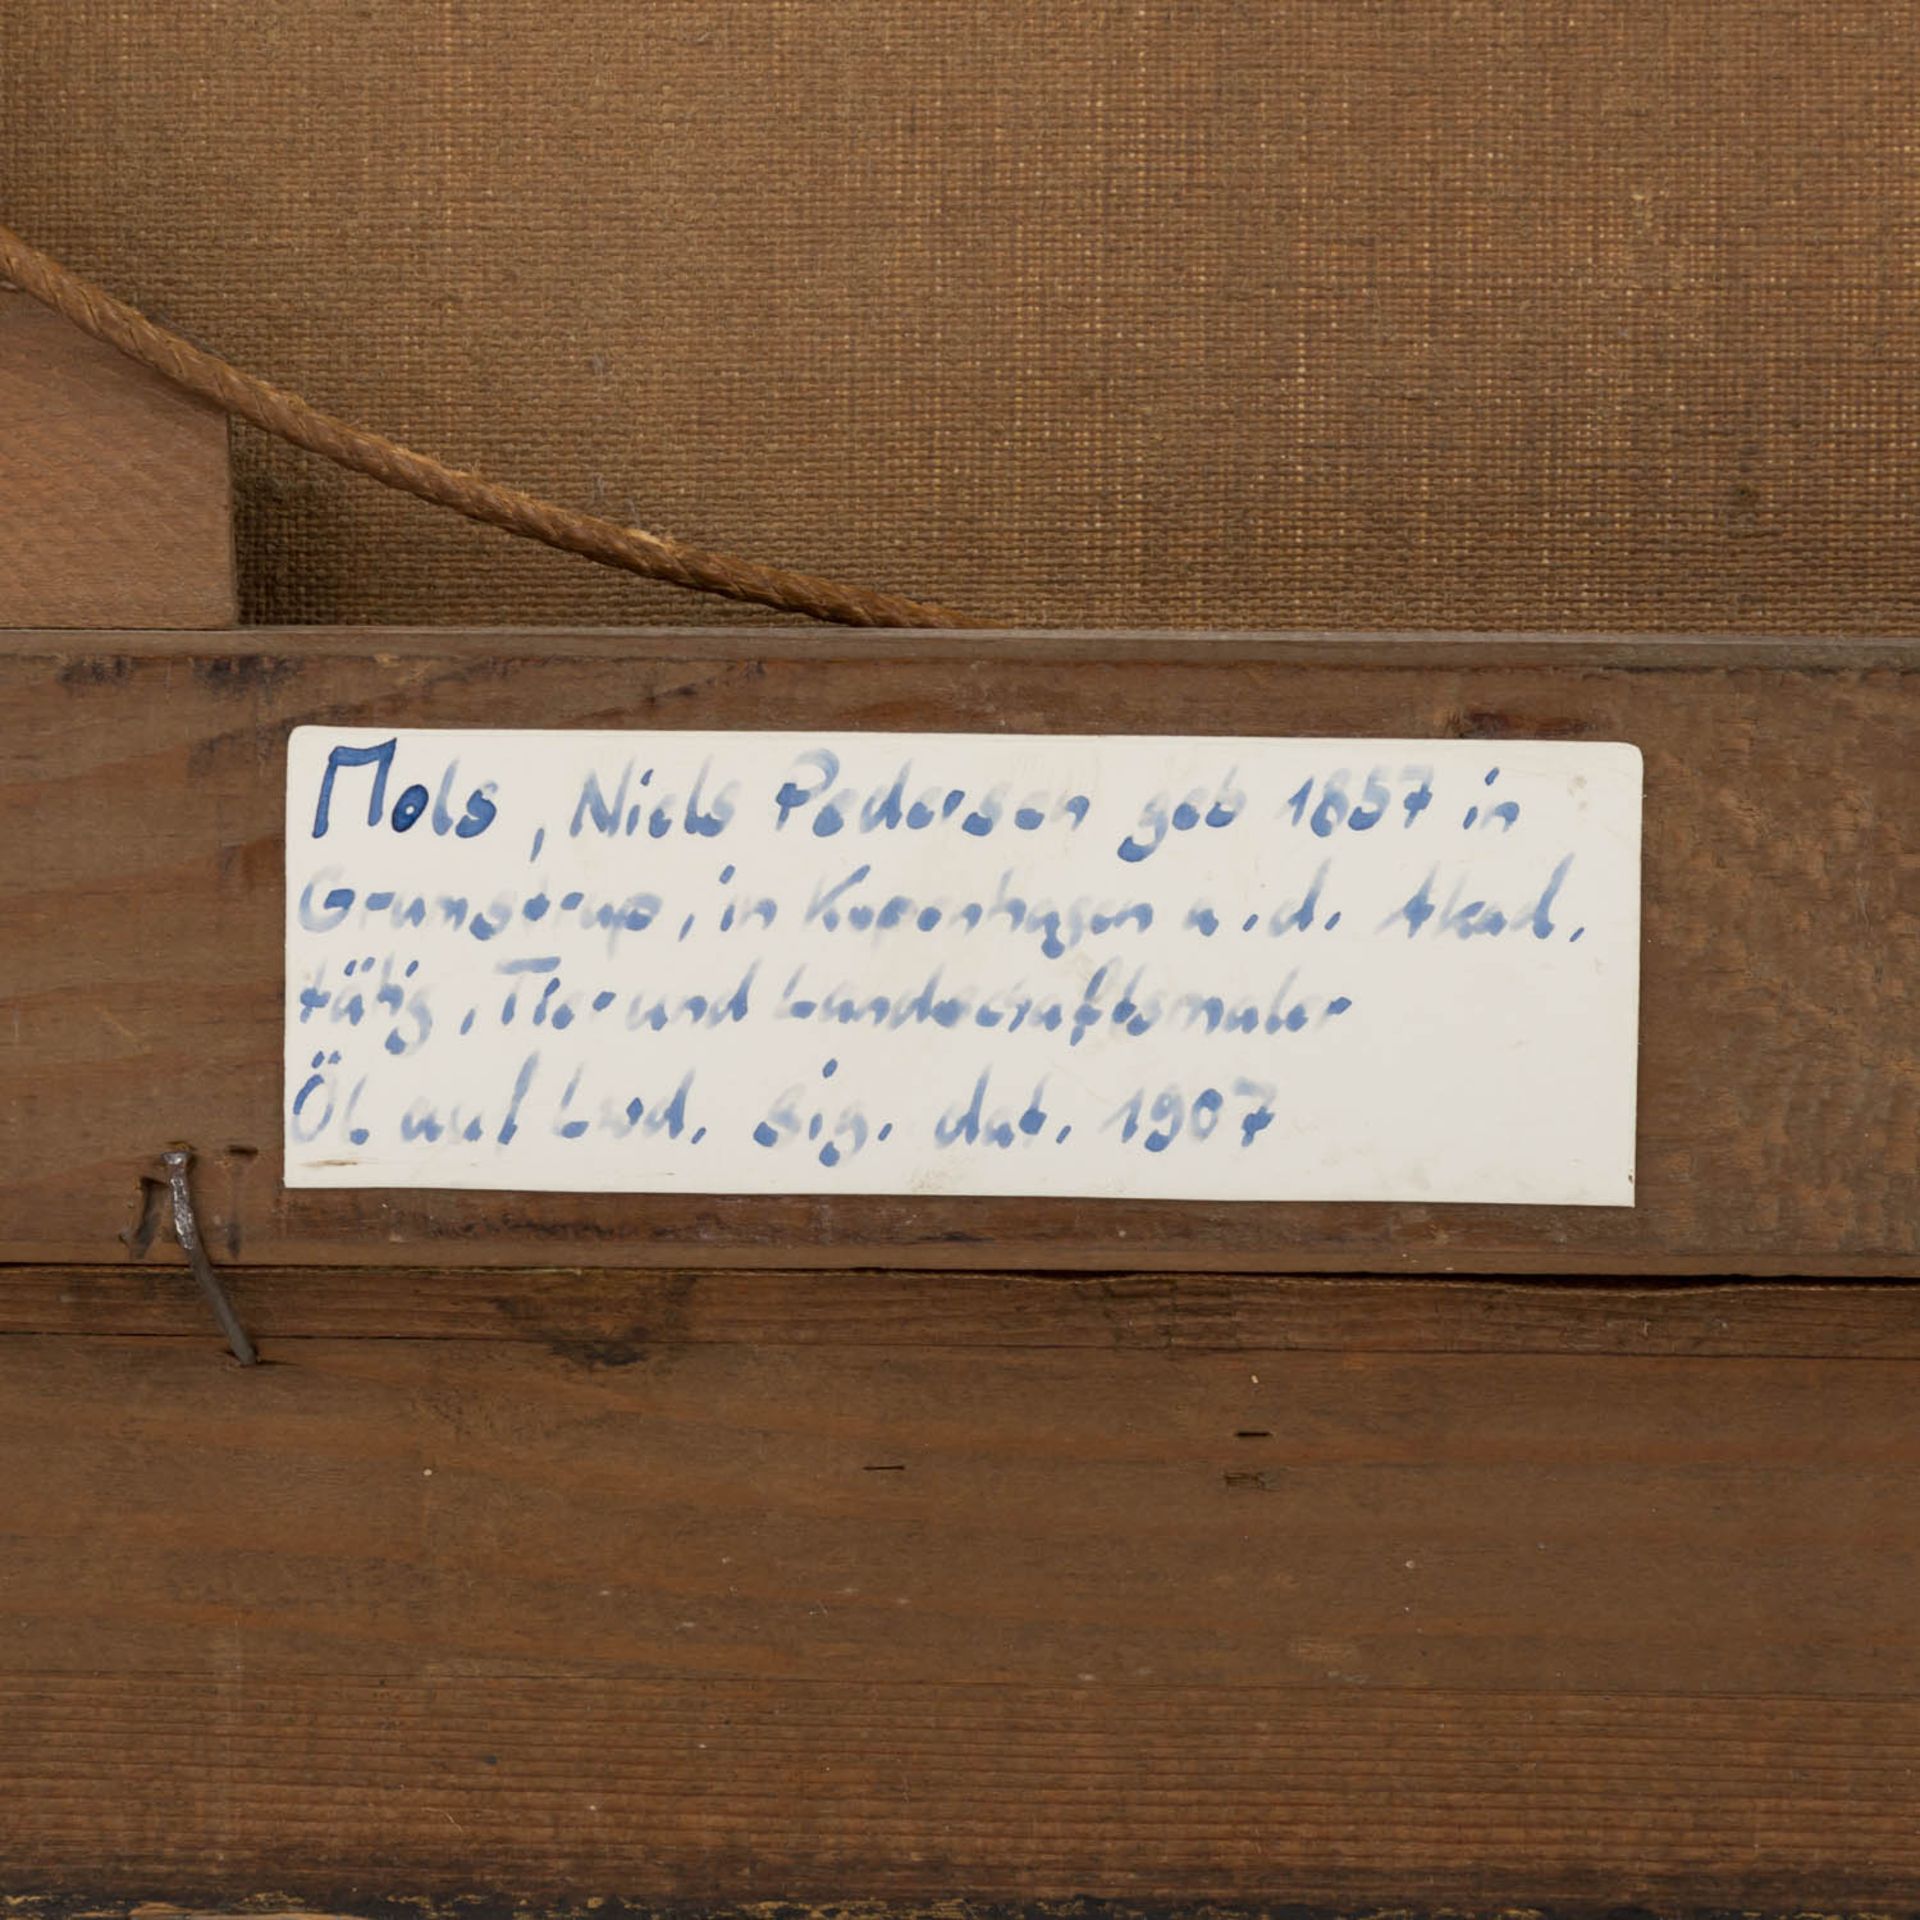 Mols, Niels Pedersen geb 1857 in
Grumstrup, in Kopenhagen a.d. Akad.
tätig, Tier und Landschaftsmaler
Öl auf Lwd. sig. dat. 1907